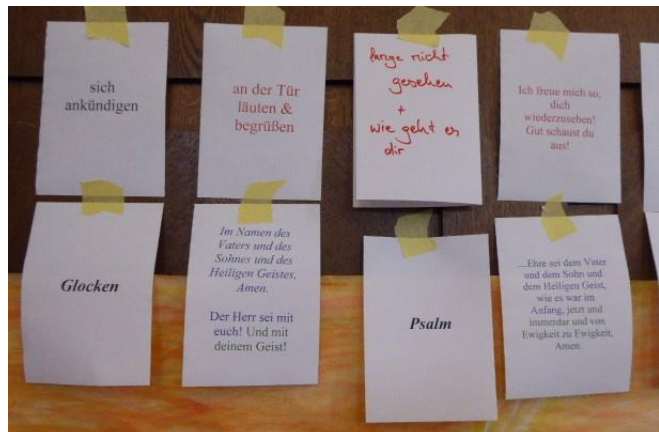 sich
ankündigen
an der Tür
läuten &
begrüßen
lange nicht
gesehen
+
wie geht es
dir
Ich freue mich so,
dich
wiederzusehen!
Gut schaust du
aus!
Glocken
Im Namen des
Vaters und des
Sohnes und des
Heiligen Geistes,
Amen.
Der Herr sei mit
euch! Und mit
deinem Geist!
Psalm
...Ehre sei dem Vater
und dem Sohn und
dem Heiligen Geist,
wie es war im
Anfang, jetzt und
immerdar und von
Ewigkeit zu Ewigkeit,
Amen.